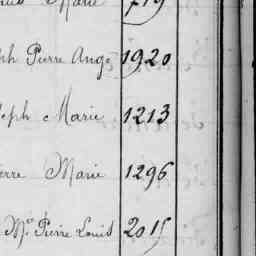 Marie 719
ph Pierre Ange 1920
seph Marie 1213
erre Marie 1296
Mie Pierre Louis 2015